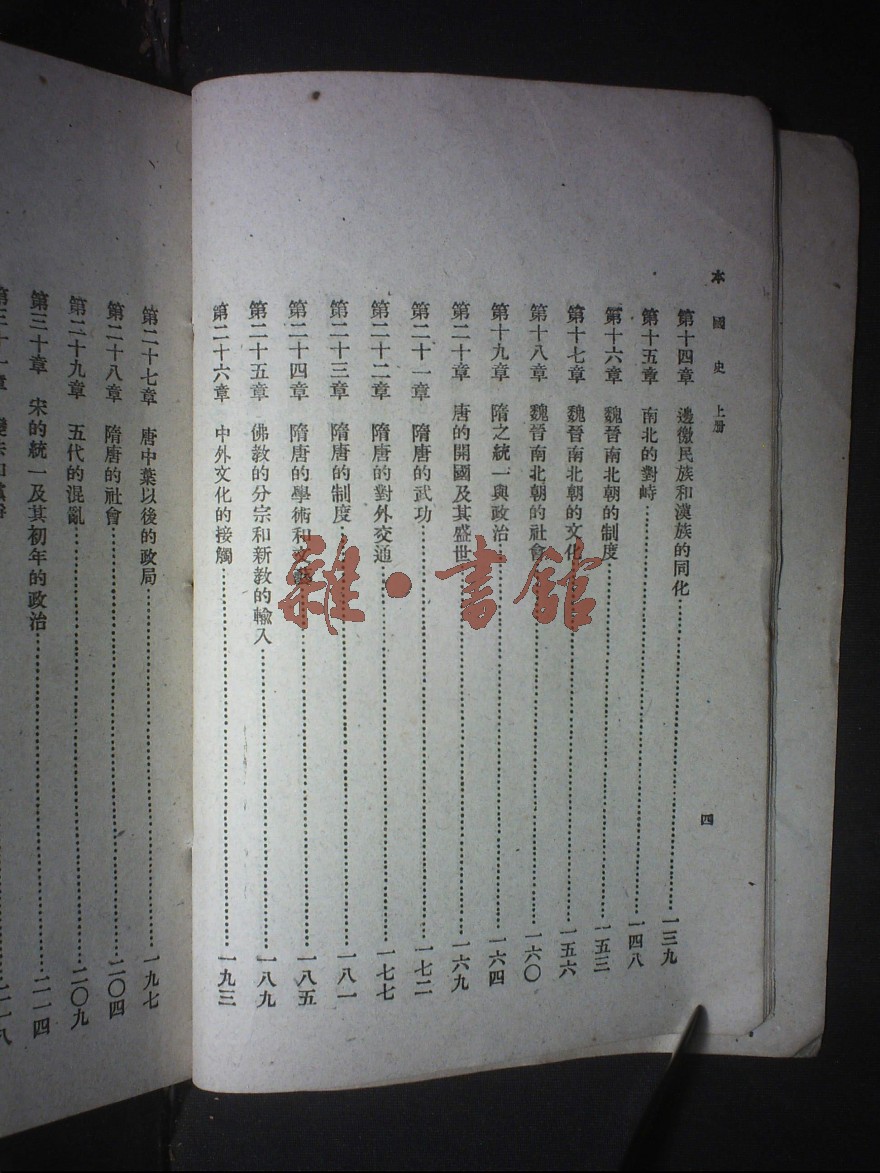 本國史 上册
四
第十四章 邊徼民族和漢族的同化 一三九
第十五章 南北的對峙 一四八
第十六章 魏晉南北朝的制度 一五三
第十七章 魏晉南北朝的文化 一五六
第十八章 魏晉南北朝的社會 一六〇
第十九章 隋之統一與政治 一六四
第二十章 唐的開國及其盛世 一六九
第二十一章 隋唐的武功 一七二
第二十二章 隋唐的對外交通 一七七
第二十三章 隋唐的制度 一八一
第二十四章 隋唐的學術和文藝 一八五
第二十五章 佛教的分宗和新教的輸入 一八九
第二十六章 中外文化的接觸 一九三
第二十七章 唐中葉以後的政局 一九七
第二十八章 隋唐的社會 二〇四
第二十九章 五代的混亂 二〇九
第三十章 宋的統一及其初年的政治 二一四
第三十一章 二一八
雜·書館